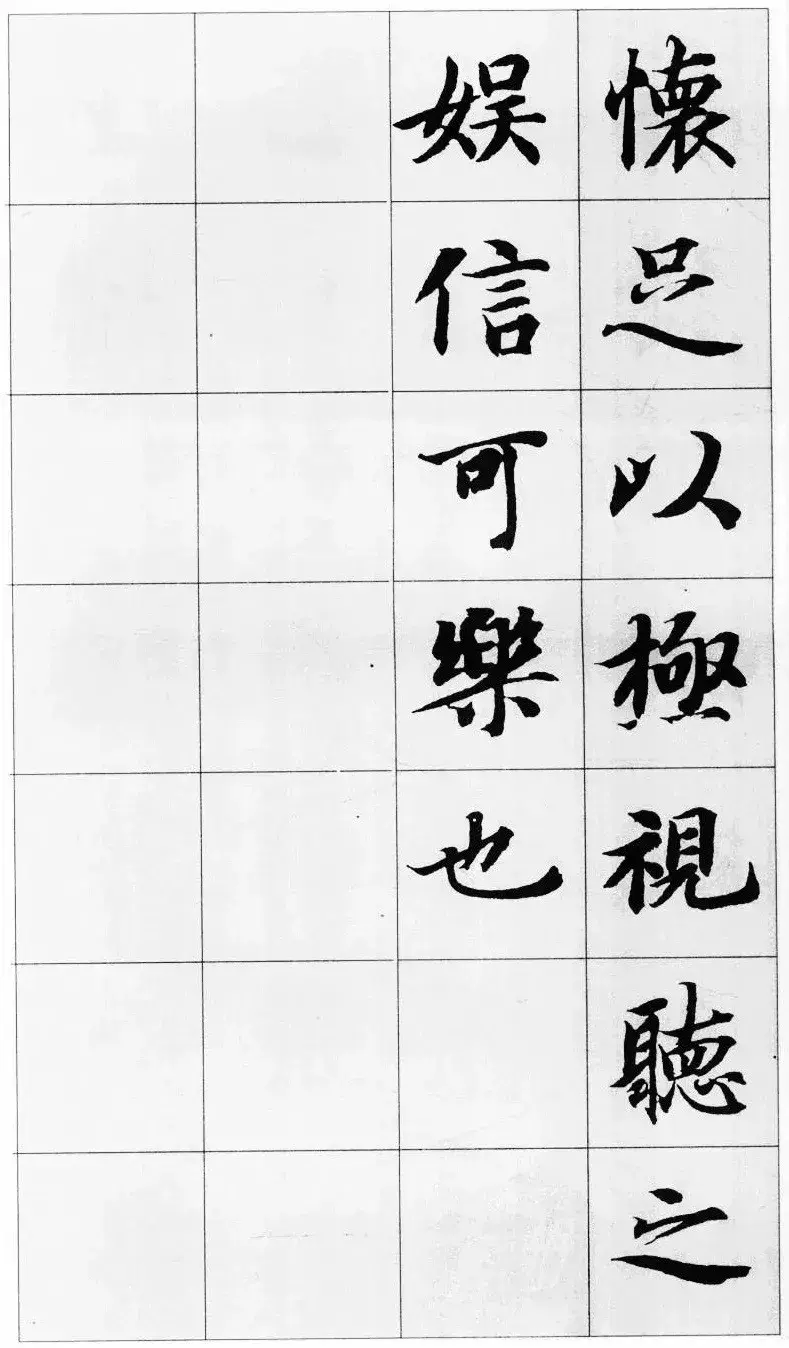 懐足以極視聽之
娱信可樂也